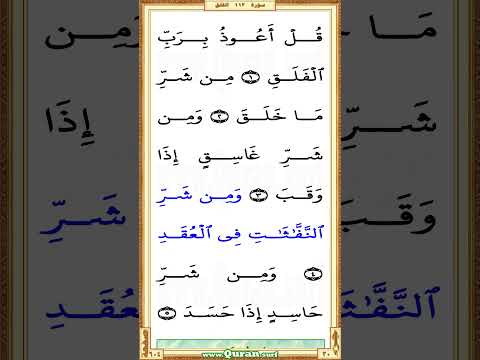 سورة ١١٣ الفلق
قُلْ أَعُوذُ بِرَبِّ
ٱلْفَلَقِ ١ مِن شَرِّ
مَا خَلَقَ ٢ وَمِن
شَرِّ غَاسِقٍ إِذَا
وَقَبَ ٣ وَمِن شَرِّ
ٱلنَّفَّٰثَٰتِ فِى ٱلْعُقَدِ
٤ وَمِن شَرِّ
حَاسِدٍ إِذَا حَسَدَ ٥
٦٠٤ www.Quran.surf ٣٠